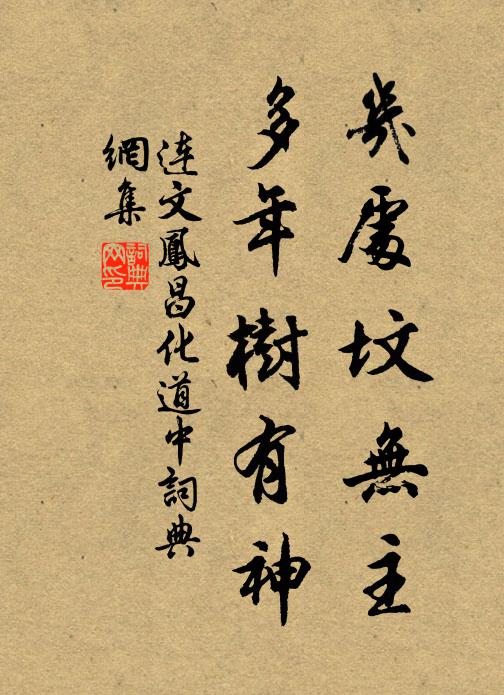 幾處墳無主
多年樹有神
連文鳳昌化道中詞典
網集
詞典網印